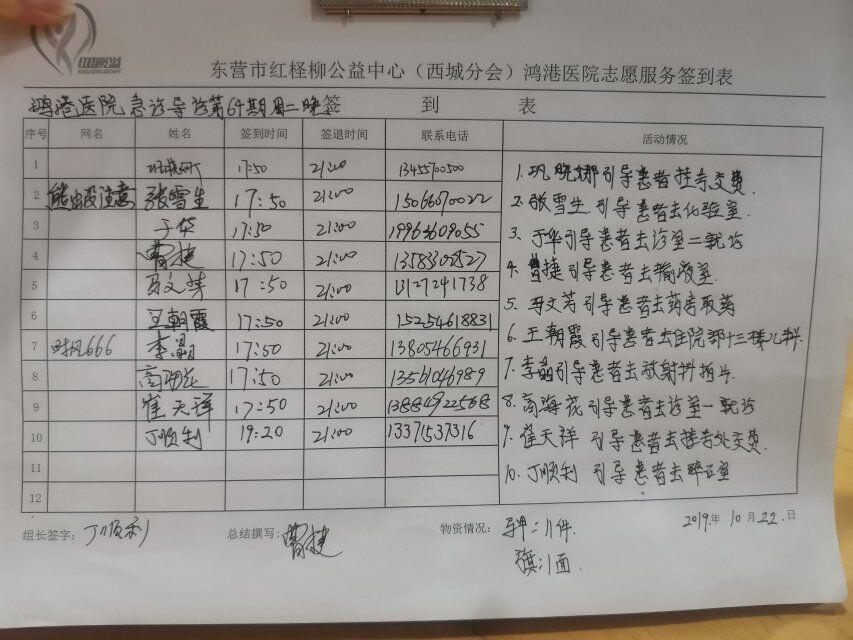 东营市红柽柳公益中心（西城分会）鸿港医院志愿服务签到表
鸿港医院急诊导诊第64期周二晚签 到 表
序号 网名 姓名 签到时间 签退时间 联系电话 活动情况
1 17:50 21:00 13455700500
2 熊出没注意 张雪生 17:50 21:00 15066070022
3 于华 17:50 21:00
4 曹捷 17:50 21:00
5 17:50 21:00 13127241738
6 王朝霞 17:50 21:00 15254618831
7 李晶 17:50 21:00 13805466931
8 高海花 17:50 21:00 13561046989
9 崔天祥 17:50 21:00 13884922568
10 丁顺利 19:20 21:00 13371537316
11
12
1. 巩晓娜引导患者挂号交费.
2. 张雪生引导患者去化验室.
3. 于华引导患者去诊室二就诊
4. 曹捷引导患者去输液室.
5. 引导患者去药房取药
6. 王朝霞引导患者去住院部十三楼儿科.
7. 李晶引导患者去放射科拍片.
8. 高海花引导患者去诊室一就诊
9. 崔天祥引导患者去挂号处交费.
10. 丁顺利引导患者去碎石室
组长签字：丁顺利 总结撰写：曹捷 物资情况：马甲：11件. 2019年10月22日
旗：1面